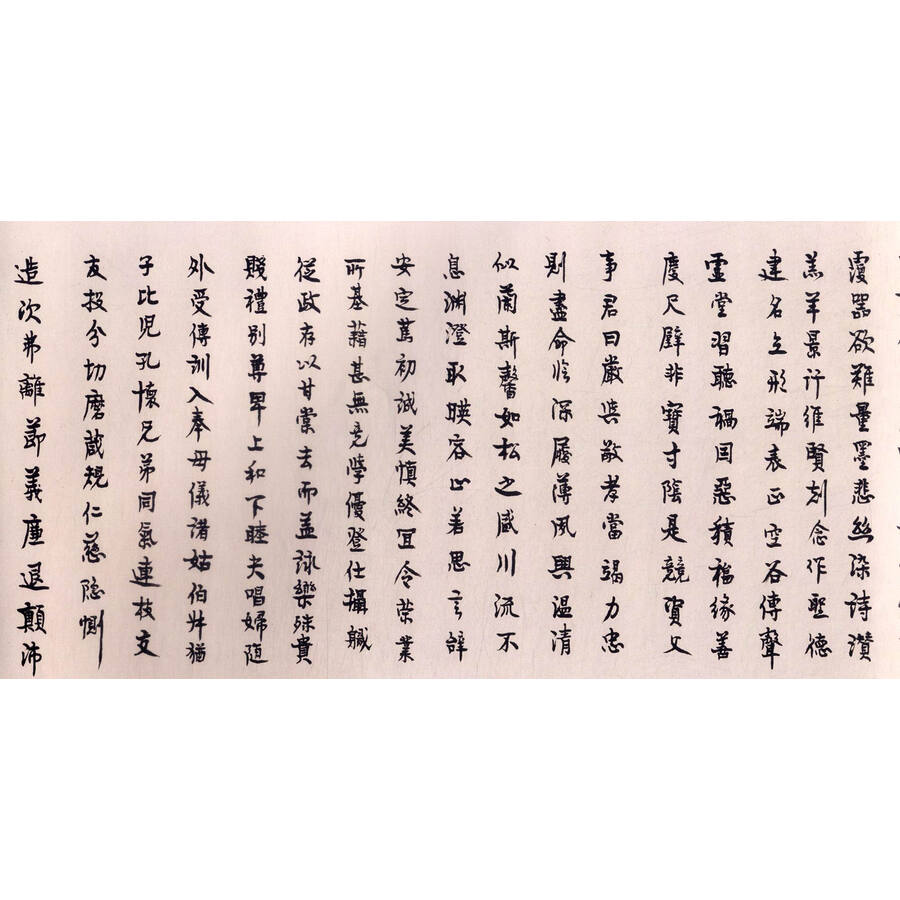 覆器欲難量墨悲絲染詩讚
羔羊景行維賢剋念作聖德
建名立形端表正空谷傳聲
虛堂習聽禍因惡積福緣善
慶尺璧非寶寸陰是競資父
事君曰嚴與敬孝當竭力忠
則盡命臨深履薄夙興溫凊
似蘭斯馨如松之盛川流不
息淵澄取暎容止若思言辭
安定篤初誠美慎終宜令榮業
所基藉甚無竟學優登仕攝職
從政存以甘棠去而益詠樂殊貴
賤禮別尊卑上和下睦夫唱婦隨
外受傅訓入奉母儀諸姑伯叔猶
子比兒孔懷兄弟同氣連枝交
友投分切磨箴規仁慈隱惻
造次弗離節義廉退顛沛